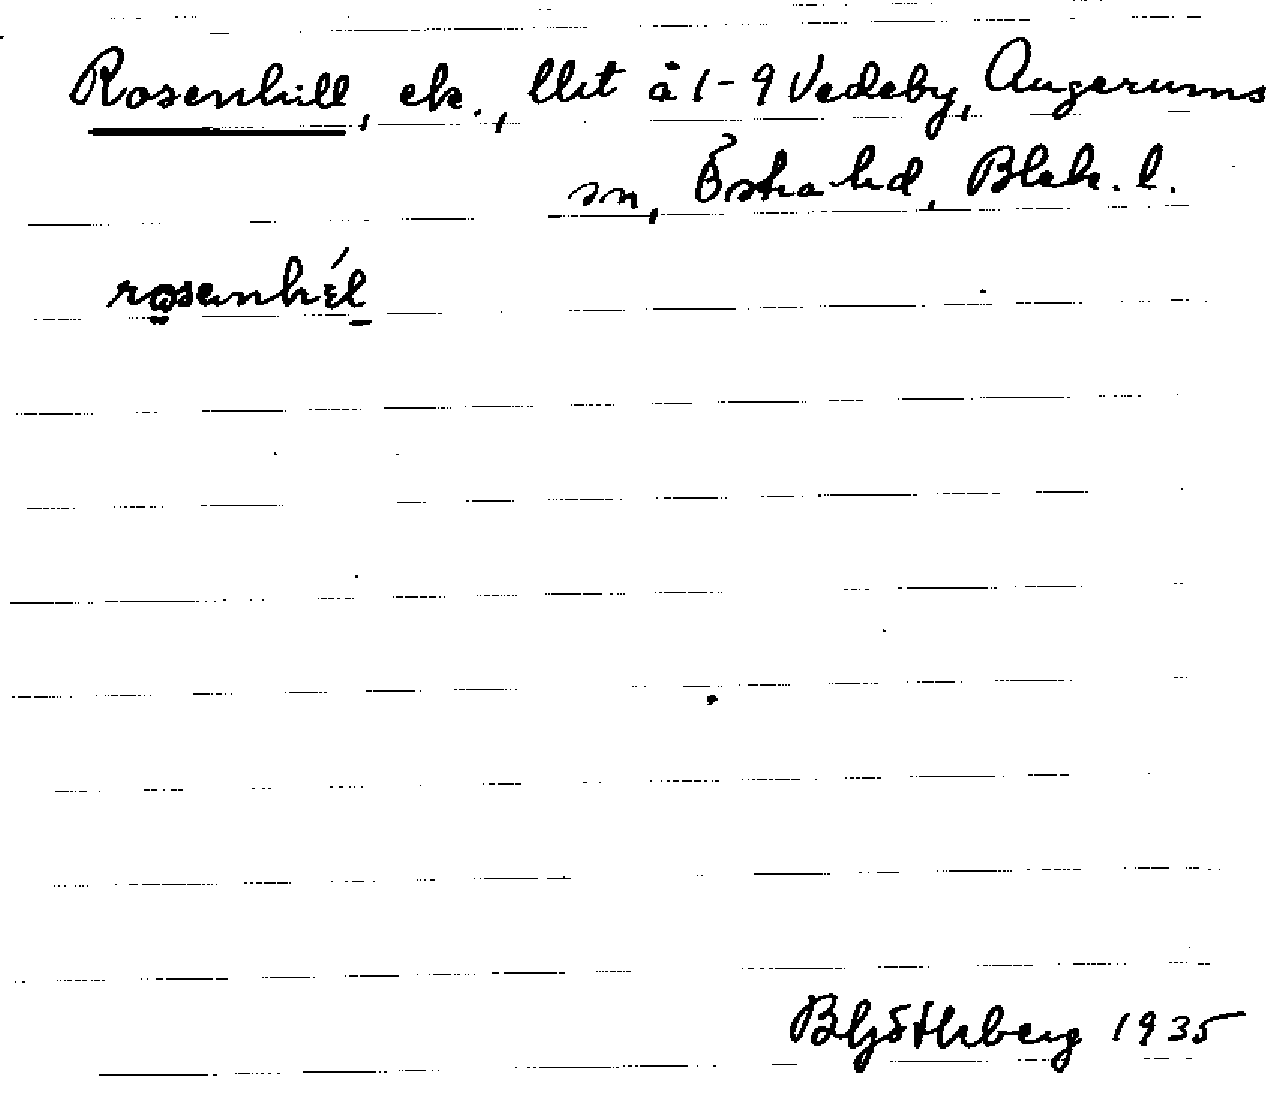 Rosenhill, ek., llit å 1-9 Vedeby, Augerums
sn, Östra hd, Blek. l.
rosenhɛ́l
B Hj Söthberg 1935